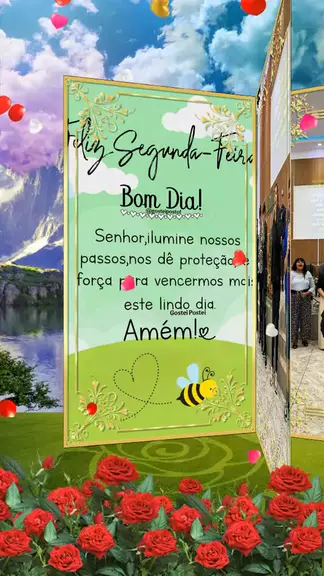 Feliz Segunda-Feira
Bom Dia!
@gosteipostei
Senhor,ilumine nossos
passos,nos dê proteção, e
força para vencermos mais
este lindo dia.
Gostei Postei
Amém!